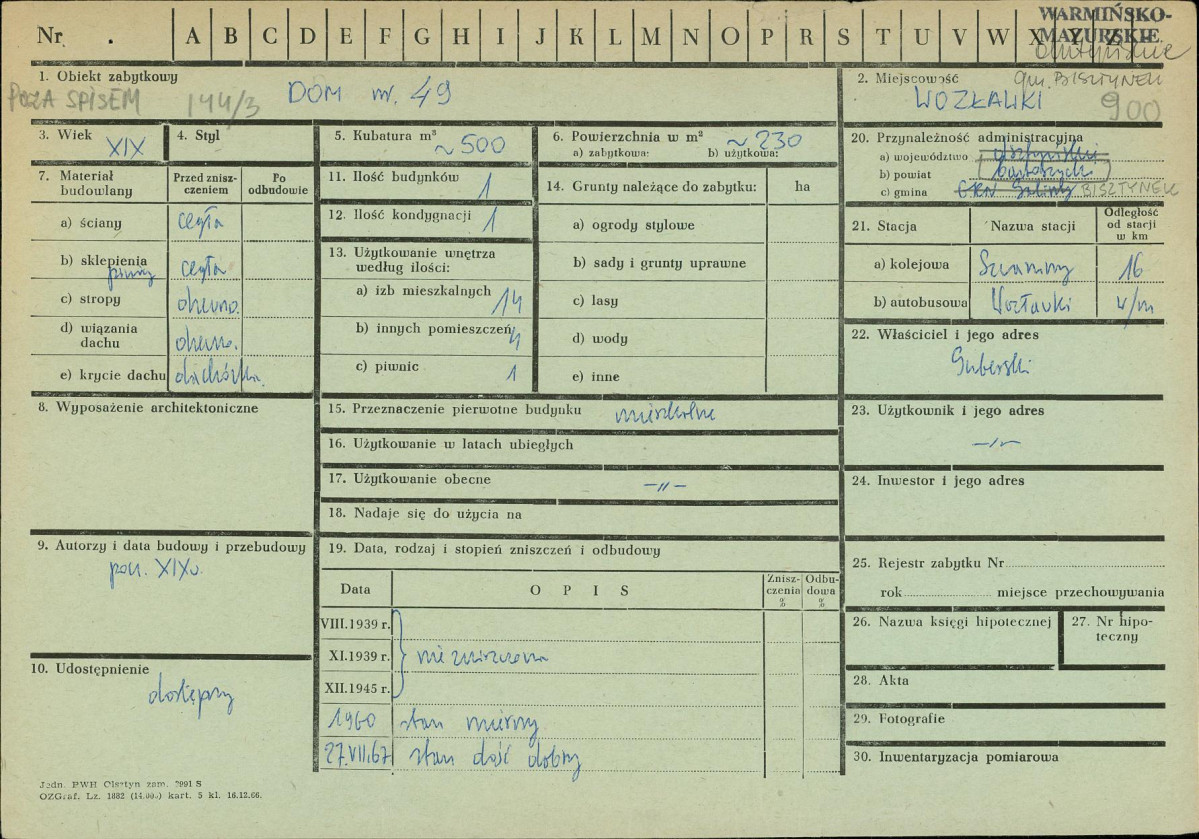 Nr. A B C D E F G H I J K L M N O P R S T U V W X Y Z
WARMIŃSKO-
MAZURSKIE
olsztyńskie
1. Obiekt zabytkowy
POZA SPISEM 144/3 DOM nr. 49
2. Miejscowość gm. BISZTYNEK
WOZŁAWKI 900
3. Wiek XIX
4. Styl
5. Kubatura m³ ~500
6. Powierzchnia w m² ~230
a) zabytkowa: b) użytkowa:
7. Materiał budowlany
Przed zniszczeniem
Po odbudowie
a) ściany cegła
b) sklepienia piwnicy cegła
c) stropy drewno.
d) wiązania dachu drewno.
e) krycie dachu dachówka.
8. Wyposażenie architektoniczne
9. Autorzy i data budowy i przebudowy
poł. XIX w.
10. Udostępnienie
dostępny
11. Ilość budynków 1
12. Ilość kondygnacji 1
13. Użytkowanie wnętrza według ilości:
a) izb mieszkalnych 14
b) innych pomieszczeń 4
c) piwnic 1
14. Grunty należące do zabytku: ha
a) ogrody stylowe
b) sady i grunty uprawne
c) lasy
d) wody
e) inne
15. Przeznaczenie pierwotne budynku mieszkalne
16. Użytkowanie w latach ubiegłych
17. Użytkowanie obecne -„-
18. Nadaje się do użycia na
19. Data, rodzaj i stopień zniszczeń i odbudowy
Data OPIS Zniszczenia % Odbudowa %
VIII.1939 r.
XI.1939 r. nie zniszczona
XII.1945 r.
1960 stan mierny
27.VII.67 stan dość dobry
20. Przynależność administracyjna
a) województwo olsztyński
b) powiat bartoszycki
c) gmina GRN BISZTYNEK
21. Stacja Nazwa stacji Odległość od stacji w km
a) kolejowa 16
b) autobusowa Wozławki w/m
22. Właściciel i jego adres
Guberski
23. Użytkownik i jego adres
-„-
24. Inwestor i jego adres
25. Rejestr zabytku Nr
rok miejsce przechowywania
26. Nazwa księgi hipotecznej
27. Nr hipoteczny
28. Akta
29. Fotografie
30. Inwentaryzacja pomiarowa
Jedn. PWH Olsztyn zam. 2991 S
OZGraf. Lz. 1882 (14.000) kart. 5 kl. 16.12.66.